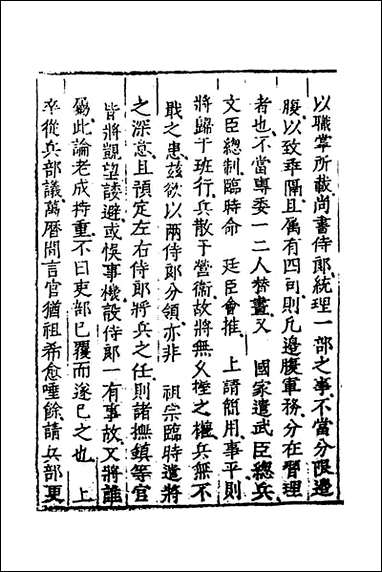 以職掌所載尚書侍郎統理一部之事不當分限邊
腹以致乖隔且属有四司則凡邊腹軍務分在督理
者也不當專委一二人替畫又　國家遣武臣總兵
文臣總制臨時命　廷臣會推　上請簡用事平則
將歸于班行兵散于營衞故將無久握之權兵無不
戢之患茲欲以兩侍郎分領亦非　祖宗臨時遣將
之深意且預定左右侍郎將兵之任則諸撫鎮等官
皆將觀望諉避或悞事機設侍郎一有事故又將誰
屬此論老成持重不曰吏部已覆而遂已之也　上
卒從兵部議萬曆間言官猶祖希愈唾餘請兵部更